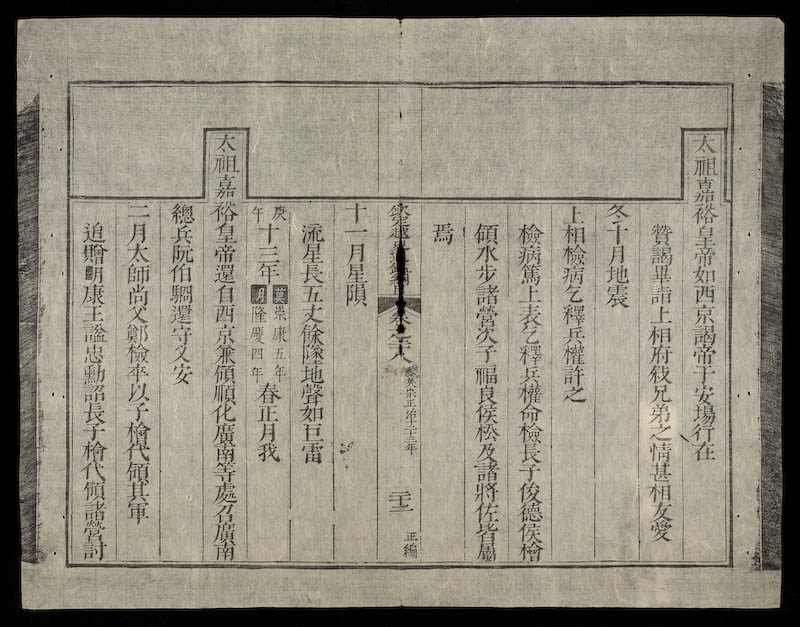 太祖嘉裕皇帝如西京謁帝于安場行在
贊謁畢詣上相府敍兄弟之情甚相友愛
冬十月地震
上相檢病乞釋兵權許之
檢病篤上表乞釋兵權命檢長子俊德侯檜
領水步諸營次子福良侯松及諸將佐皆屬
焉
欽定越史 綱目 卷之二十八 黎英宗正治十二十三年 二十二 正編
十一月星隕
流星長五丈餘墜地聲如巨雷
庚午十三年 莫崇康五年 明隆慶四年 春正月我
太祖嘉裕皇帝還自西京兼領順化廣南等處召廣南
總兵阮伯駉還守乂安
二月太師尚父鄭檢卒以子檜代領其軍
追贈明康王謚忠勳詔長子檜代領諸營討